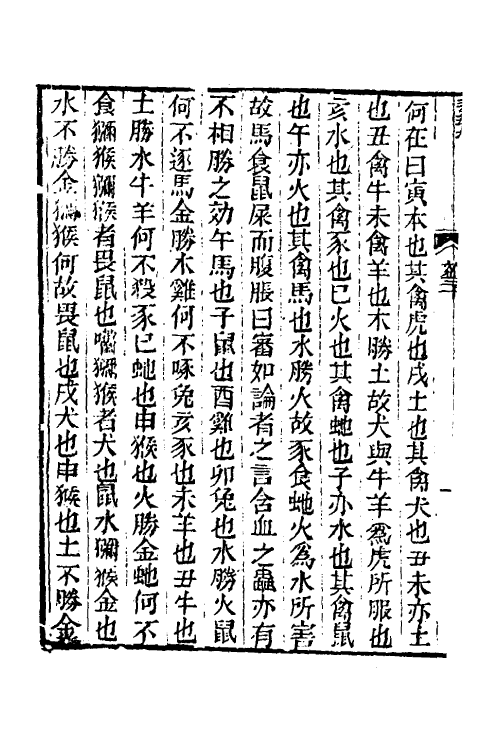 何在曰寅木也其禽虎也戌土也其禽犬也丑未亦土
也丑禽牛未禽羊也木勝土故犬與牛羊爲虎所服也
亥水也其禽豕也巳火也其禽虵也子亦水也其禽鼠
也午亦火也其禽馬也水勝火故豕食虵火爲水所害
故馬食鼠屎而腹脹曰審如論者之言含血之蟲亦有
不相勝之効午馬也子鼠也酉雞也卯兔也水勝火鼠
何不逐馬金勝木雞何不啄兔亥豕也未羊也丑牛也
土勝水牛羊何不殺豕巳虵也申猴也火勝金虵何不
食獼猴獼猴者畏鼠也嚙獼猴者犬也鼠水獼猴金也
水不勝金獼猴何故畏鼠也戌犬也申猴也土不勝金